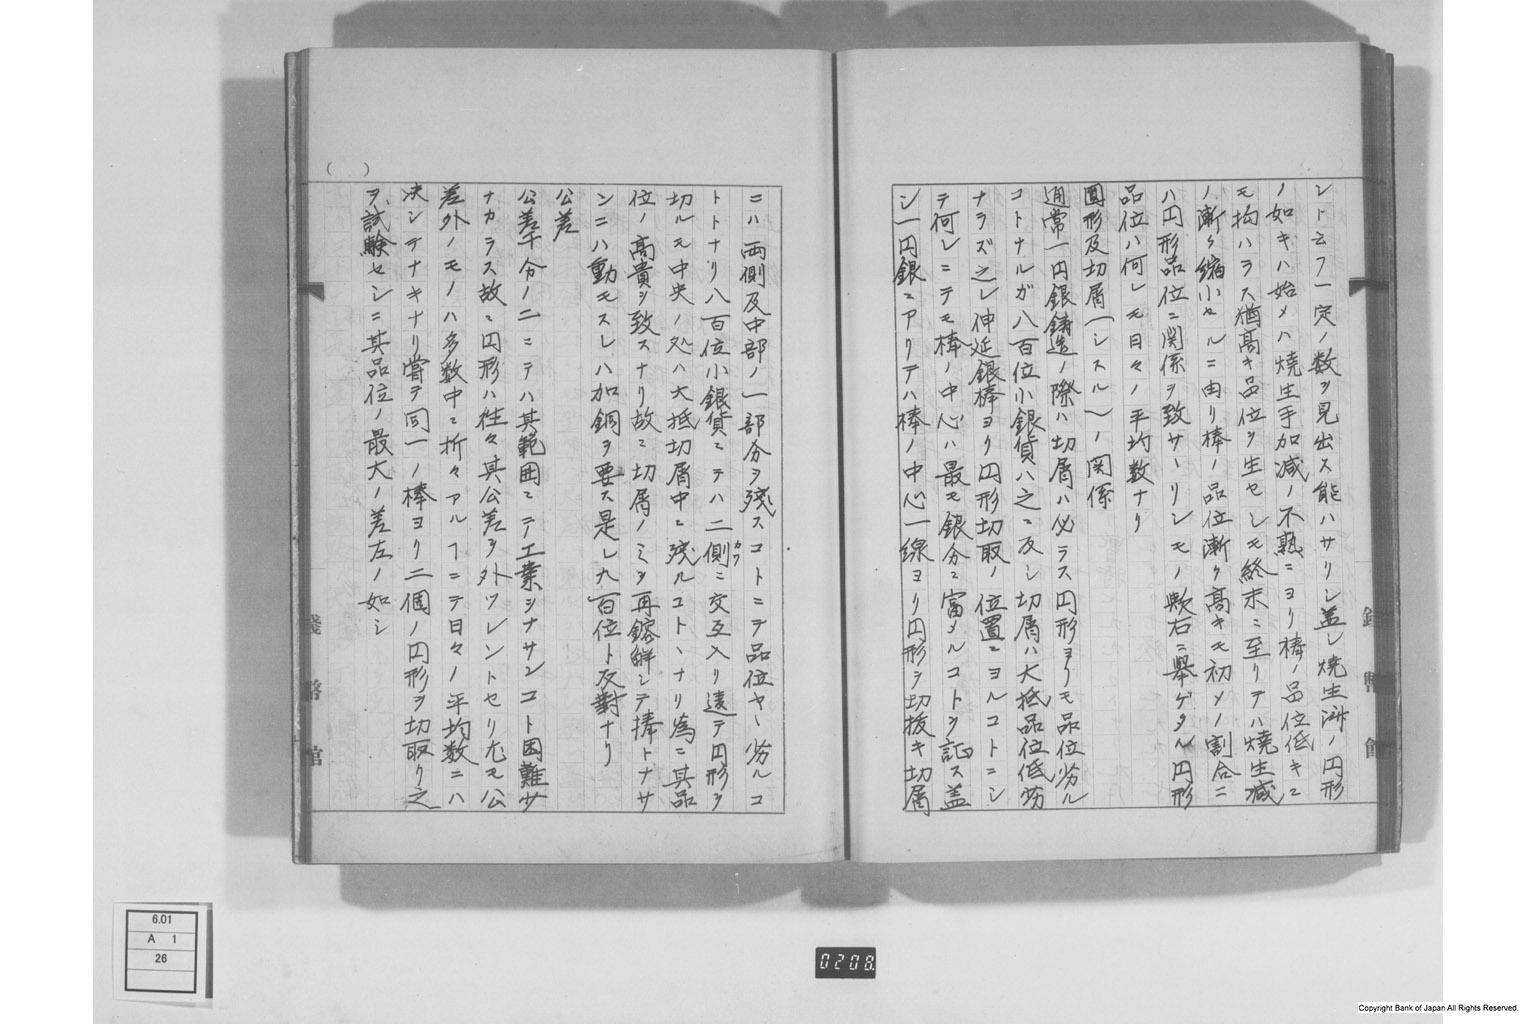 ント云フ一定ノ数ヲ見出ス能ハサリシ蓋シ焼生済ノ円形
ノ如キハ始メハ焼生手加減ノ不熟ニヨリ棒ノ品位低キニ
モ拘ハラス猶高キ品位ヲ生セシモ終末ニ至リテハ焼生減
ノ漸々縮小セルニ由リ棒ノ品位漸ク高キモ初メノ割合ニ
ハ円形品位ニ関係ヲ致サヾリシモノ歟右ニ挙ゲタル円形
品位ハ何レモ日々ノ平均数ナリ
圓形及切屑(シスル)ノ関係
通常一円銀鋳造ノ際ハ切屑ハ必ラス円形ヨリモ品位劣ル
コトナルガ八百位小銀貨ハ之ニ反シ切屑ハ大抵品位低劣
ナラズ之レ伸延銀棒ヨリ円形切取ノ位置ニヨルコトニシ
テ何レニテモ棒ノ中心ハ最モ銀分ニ富メルコトヲ証ス蓋
シ一円銀ニアリテハ棒ノ中心一線ヨリ円形ヲ切抜キ切屑
ニハ両側及中部ノ一部分ヲ残スコトニテ品位ヤヽ劣ルコ
トトナリ八百位小銀貨ニテハ二側ニ交互入リ違テ円形ヲ
カワ
切ルモ中央ノ処ハ大抵切屑中ニ残ルコトヽナリ為ニ其品
位ノ高貴ヲ致スナリ故ニ切屑ノミヲ再鎔解シテ棒トナサ
ンニハ動モスレハ加銅ヲ要ス是レ九百位ト反對ナリ
公差
公差千分ノ二ニテハ其範囲ニテ工業ヲナサンコト困難少
ナカラス故ニ円形ハ往々其公差ヲ外ツレントセリ尤モ公
差外ノモノハ多数中ニ折々アルヿニテ日々ノ平均数ニハ
決シテナキナリ嘗テ同一ノ棒ヨリ二個ノ円形ヲ切取リ之
ヲ試験セシニ其品位ノ最大ノ差左ノ如シ
( )
銭幣館
6.01
A 1
26
0208
Copyright Bank of Japan All Rights Reserved.